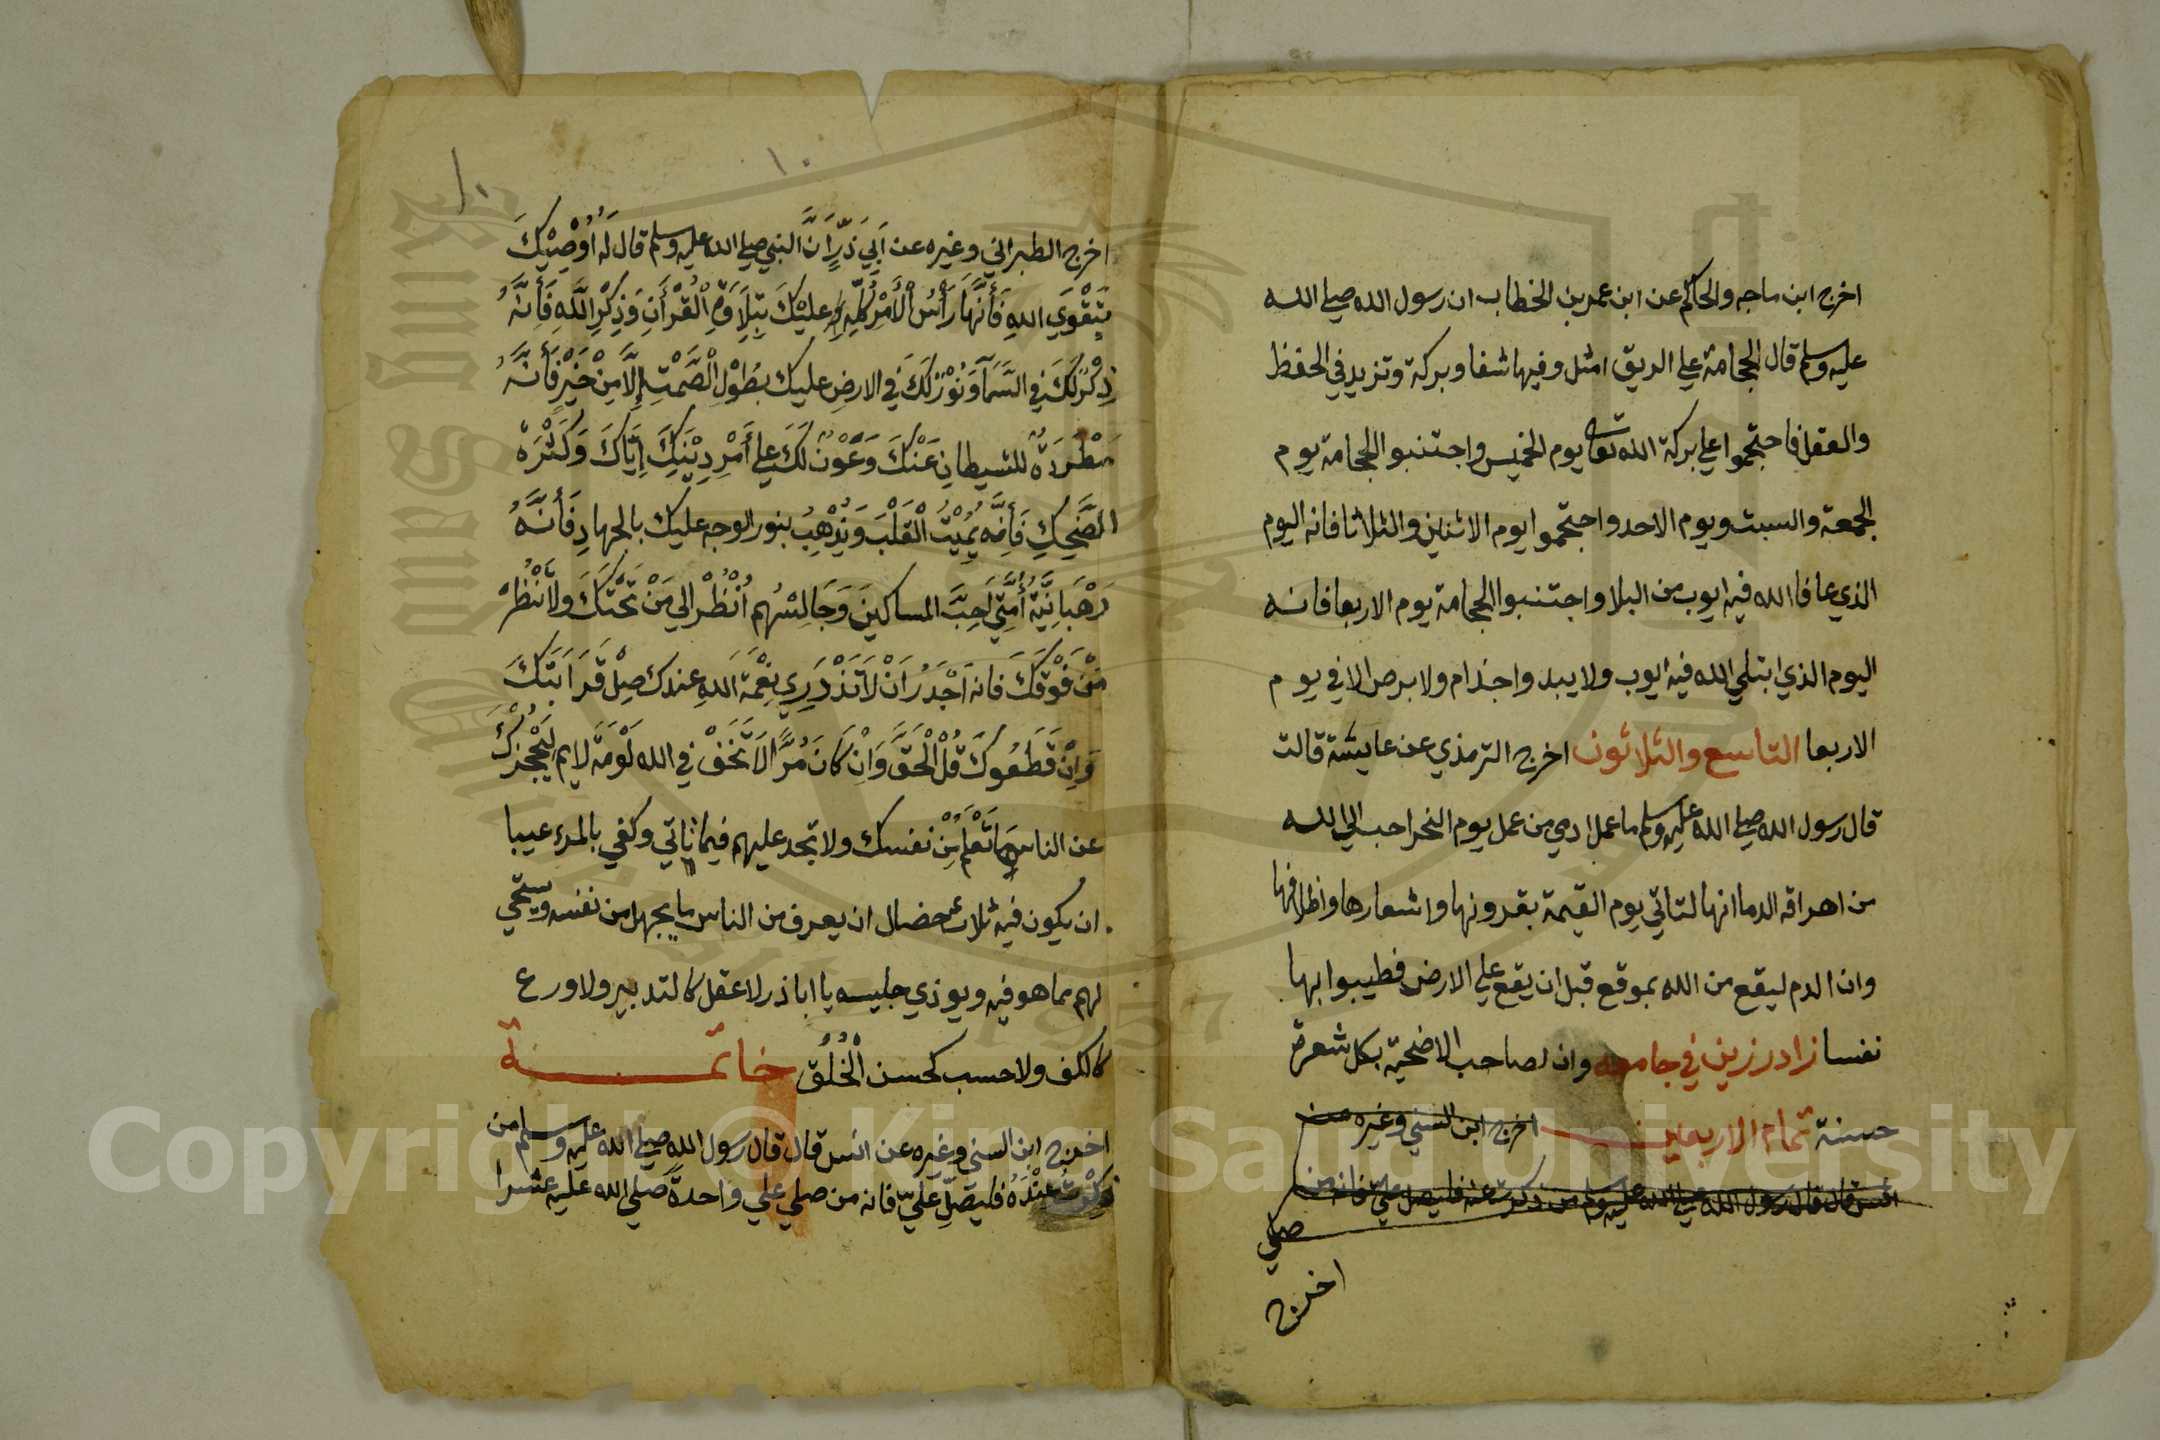 اخرج ابن ماجه والحاكم عن ابن عمر بن الخطاب ان رسول الله صلي الله
عليه وسلم قال الحجامة علي الريق امثل وفيها شفا وبركة وتزيد في الحفظ
والعقل فاحتجموا علي بركة الله تعالى يوم الخميس واجتنبوا الحجامة يوم
الجمعة والسبت ويوم الاحد واحتجموا يوم الاثنين والثلاثا فانه اليوم
الذي عافا الله فيه ايوب من البلا واجتنبوا الحجامة يوم الاربعا فانه
اليوم الذي ابتلي الله فيه ايوب ولا يبدوا جذام ولا برص الا في يوم
الاربعا التاسع والثلاثون اخرج الترمذي عن عايشة قالت
قال رسول الله صلي الله عليه وسلم ما عمل ادمي من عمل يوم النحر احب الي الله
من اهراقه الدما انها لتاتي يوم القيمة بقرونها واشعارها واظلافها
وان الدم ليقع من الله بموقع قبل ان يقع علي الارض فطيبوا بها
نفسا زاد رزين في جامعه وان لصاحب الاضحية بكل شعرة
حسنة تمام الاربعين اخرج ابن السني وغيره عن
انس قال قال رسول الله صلي الله عليه وسلم من ذكرت عنده فليصل علي فانه من
صلي
اخرج
١٠
١٠
اخرج الطبراني وغيره عن اَبِي ذَرٍّ اَنَّ النبي صلي الله عليه وسلم قال له أُوْصِيْكَ
بِتَقْوَي اللهِ فَأنَّهَا رَأْسُ الْأَمْرِ كُلِّهِ عليْكَ بِتِلَاوَةِ الْقُرْأَنِ وَذِكْرِ اللَّهِ فَأِنَّهُ
ذِكْرٌ لَكَ فِي السَّمَآ وَنُوْرٌ لَكَ فِي الارضِ عليك بطُوْلِ الصَّمْتِ إِلَّا مِنْ خَيْرٍ فَأنَّهُ
مَطْرَدَةٌ للشيطانِ عَنْكَ وَعَوْنٌ لَكَ علي أَمْرِ دِيْنِكَ إِيَّاكَ وَكَثْرَةَ
الضَّحِكِ فَأِنَّه يُمِيْتُ الْقَلْبَ وَيُذْهِبُ بنور الوجه عليك بالجهادِ فَأنَّهُ
رَهْبَانِيَّةُ أُمَّتِي اَحِبَّ المساكينَ وَجَالِسْهُم اُنْظُرْ الي مَنْ تَحْتَكَ ولاَ تَنْظُرْ
مَنْ فَوْقَكَ فانه اَجْدَرُ اَنْ لَا تَزْدَرِي نِعْمَةَ اللهِ عندك صِلْ قَرَابَتَكَ
وَاِنْ قَطَعُوكَ قُلْ الْحَقَّ وَاِنْ كَانَ مُرًّا لَا تَخَفْ في الله لَوْمَةَ لايم لِيَحْجُزْكَ
عن الناسِ مَا تَعْلَمُ مِنْ نفسك ولا تجد عليهم فيما تاتي وكفي بالمرء عيبا
ان يكون فيه ثلاث خصال ان يعرف من الناس ما يجهل من نفسه ويستحي
لهم مما هو فيه ويوذي جليسه يا اباذر لا عقل كالتدبير ولا ورع
كالكف ولا حسب كحسن الْخُلُقِ خاتمة
اخرج ابن السني وغيره عن انس قال قال رسول الله صلي الله عليه وسلم من
ذكرت عِنْدَهُ فليصَلِّ عليّ فانه من صلي علي واحدةً صلي الله عليه عشرا
King Saud University
1957
Copyright © King Saud University